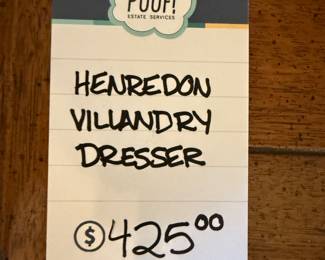 POOF!
ESTATE SERVICES
HENREDON
VILLANDRY
DRESSER
$425⁰⁰